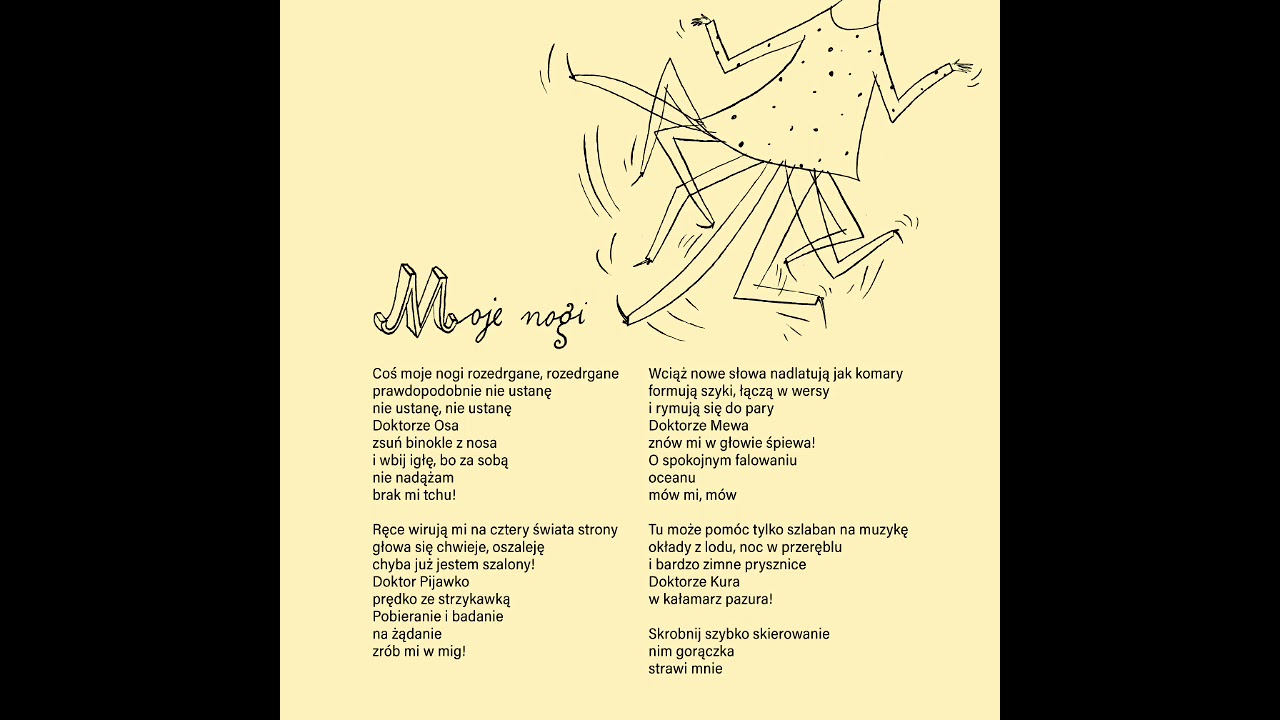 Moje nogi
Coś moje nogi rozedrgane, rozedrgane
prawdopodobnie nie ustanę
nie ustanę, nie ustanę
Doktorze Osa
zsuń binokle z nosa
i wbij igłę, bo za sobą
nie nadążam
brak mi tchu!
Ręce wirują mi na cztery świata strony
głowa się chwieje, oszaleję
chyba już jestem szalony!
Doktor Pijawko
prędko ze strzykawką
Pobieranie i badanie
na żądanie
zrób mi w mig!
Wciąż nowe słowa nadlatują jak komary
formują szyki, łączą w wersy
i rymują się do pary
Doktorze Mewa
znów mi w głowie śpiewa!
O spokojnym falowaniu
oceanu
mów mi, mów
Tu może pomóc tylko szlaban na muzykę
okłady z lodu, noc w przeręblu
i bardzo zimne prysznice
Doktorze Kura
w kałamarz pazura!
Skrobnij szybko skierowanie
nim gorączka
strawi mnie